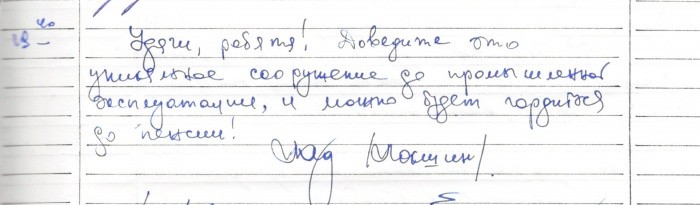 19 40
Удачи, ребята! Доведите это
уникальное сооружение до промышленной
эксплуатации, и можно будет гордиться
до пенсии!
/Мосшин/.